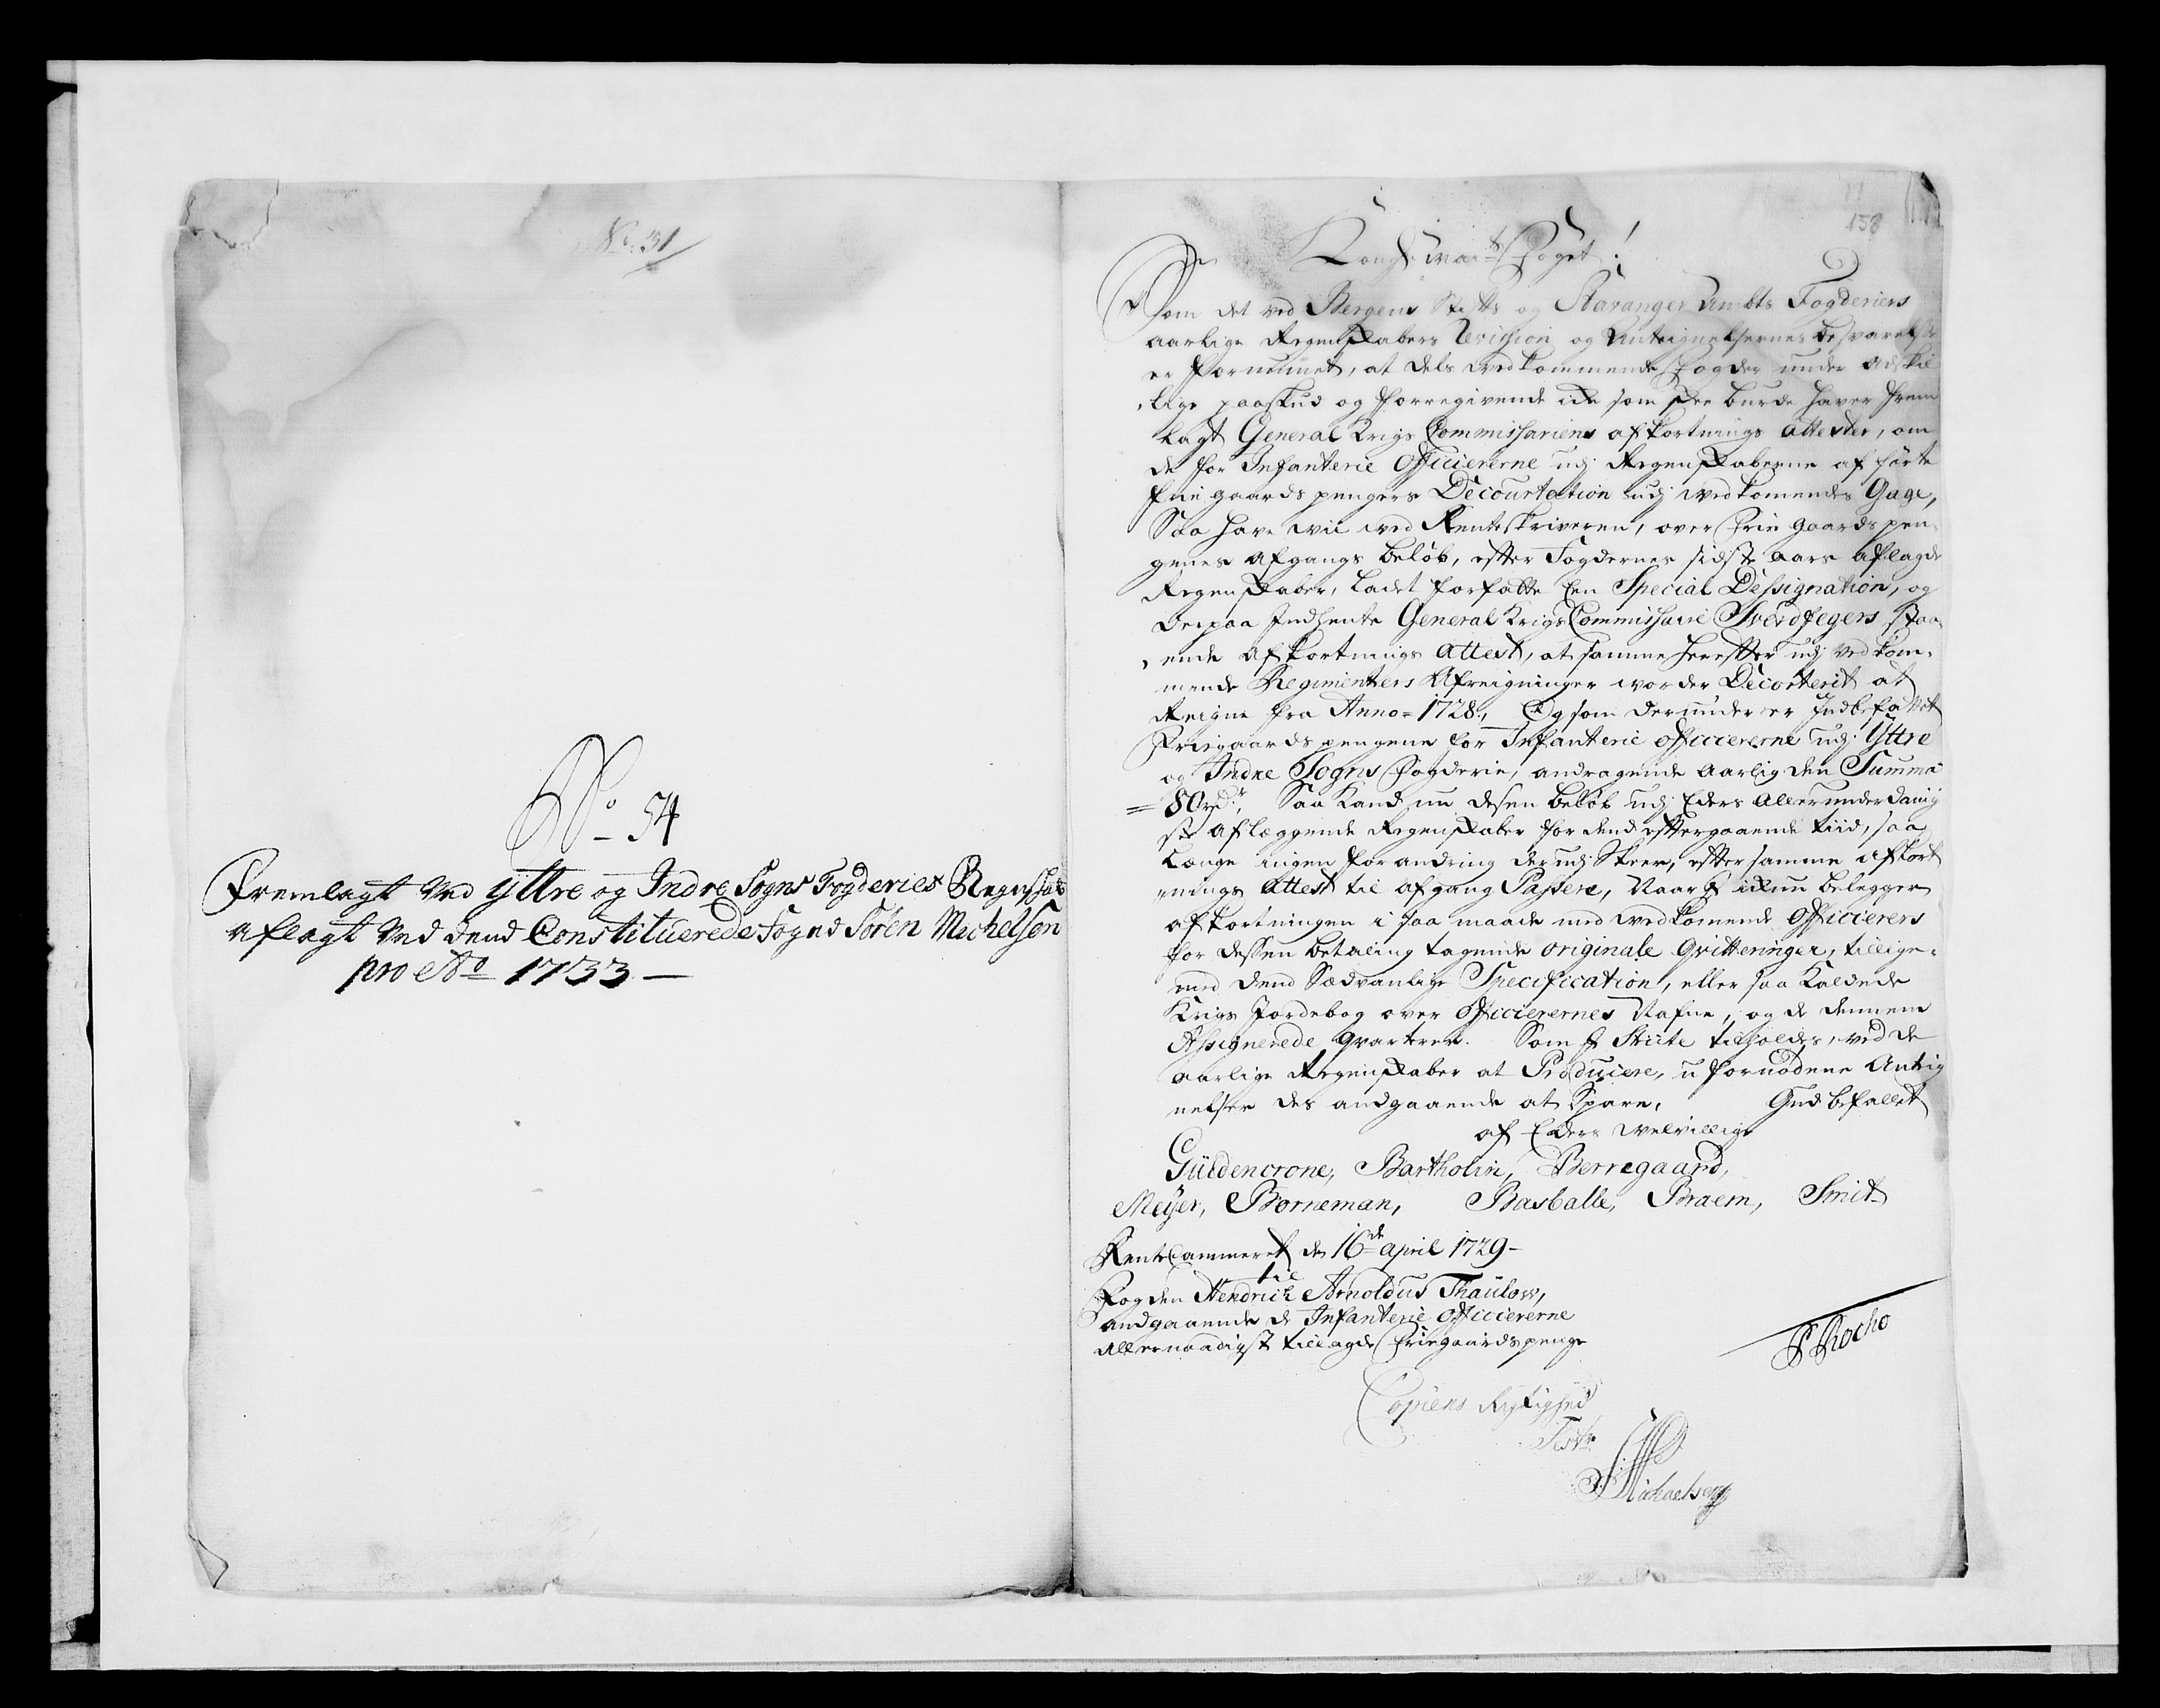 No. 31
No 54
Fremlagt Ved Yttre og Indre Sogns Fogderies Regenskab
aflagt Ved dend Constituerede Foged Sören Michelsen
pro Ao 1733 —
158
Kongl. May:ts Foget!
Som det ved Bergens Stifts og Stavanger Ambts Fogderiers
aarlige Regenskabers Revission og Anteignelsernes besvarelse
er fornummet, at dels vedkommende Fogder under adskil
lige paaskud og forregivende icke som dee burde haver frem
lagt General Krigs Commissariens afkortnings attester, om
de for Infanterie Officiererne udj Regenskaberne afførte
frie gaards pengers Decourtation udj vedkomendes Gage,
Saa have wii ved Renteskriveren, over frie gaards pen
genes afgangs beløb, efter Fogdernes sidste aars aflagde
Regenskaber, ladet forfatte een Special Dessignation, og
derpaa Indhente General Krigs Commissarie Sverdfegers staa
ende afkortnings attest, at samme herefter udj vedkom
mende Regimenters Afreigninger worder Decorterit at
Reigne fra Anno = 1728., Og som derunder er Indbefattet
Friegaards pengene for Infanterie officiererne udj Yttre
og Indre Sogns Fogderie, andragende aarlig den Summa
= 80 rd:r, Saa kand nu desen beløb udj Eders allerunderdanig
st aflæggende Regenskaber for dend eftergaaende tiid, saa
længe ingen forandring derudj skeer, efter samme afkort
nings attest til afgang Passere, Naar I ickun belegger
afkortningen i saa maade med vedkomende Officierers
for dessen betaling tagende originale qvitteringer, tillige
med dend Sædvanlige Specification, eller saa kaldede
Krigs Jordebog over Officierernes Nafne, og de dennem
Assignerede qvarterer. Som I skulle tilholdes, ved de
aarlige Regenskaber at Producere, u fornødene Anteig
nelser des andgaaende at Spare, Gud befallet
af Eders velvillige
Güldencrone, Bartholin, Berregaard,
Meÿer, Borneman, Basballe, Braem, Smit
RenteCammeret den 16de april 1729 –
til
Fogden Hendrich Arnoldus Thaulow,
andgaaende de Infanterie officiererne
allernaadigst tillagde friegaards penge
P Rocho
Copiens Rigtighed
Test:
S Michaelsen